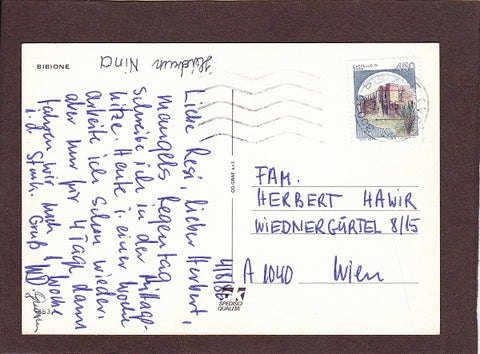 BIBIONE
Heidrun Nina
4/8/86
Liebe Resi, lieber Herbert,
mangels Regentag
schreibe ich in der Mittags-
hitze. Heute i. einer Woche
arbeite ich schon wieder.
aber nur für 4 Tage dann
fahren wir noch 1 Woche
i. d. Stmk. Gruß
CASTELLO DI
450
FAM.
HERBERT HAWIR
WIEDNERGÜRTEL 8/15
A 1040 Wien
SPEDISCI
QUALITÀ